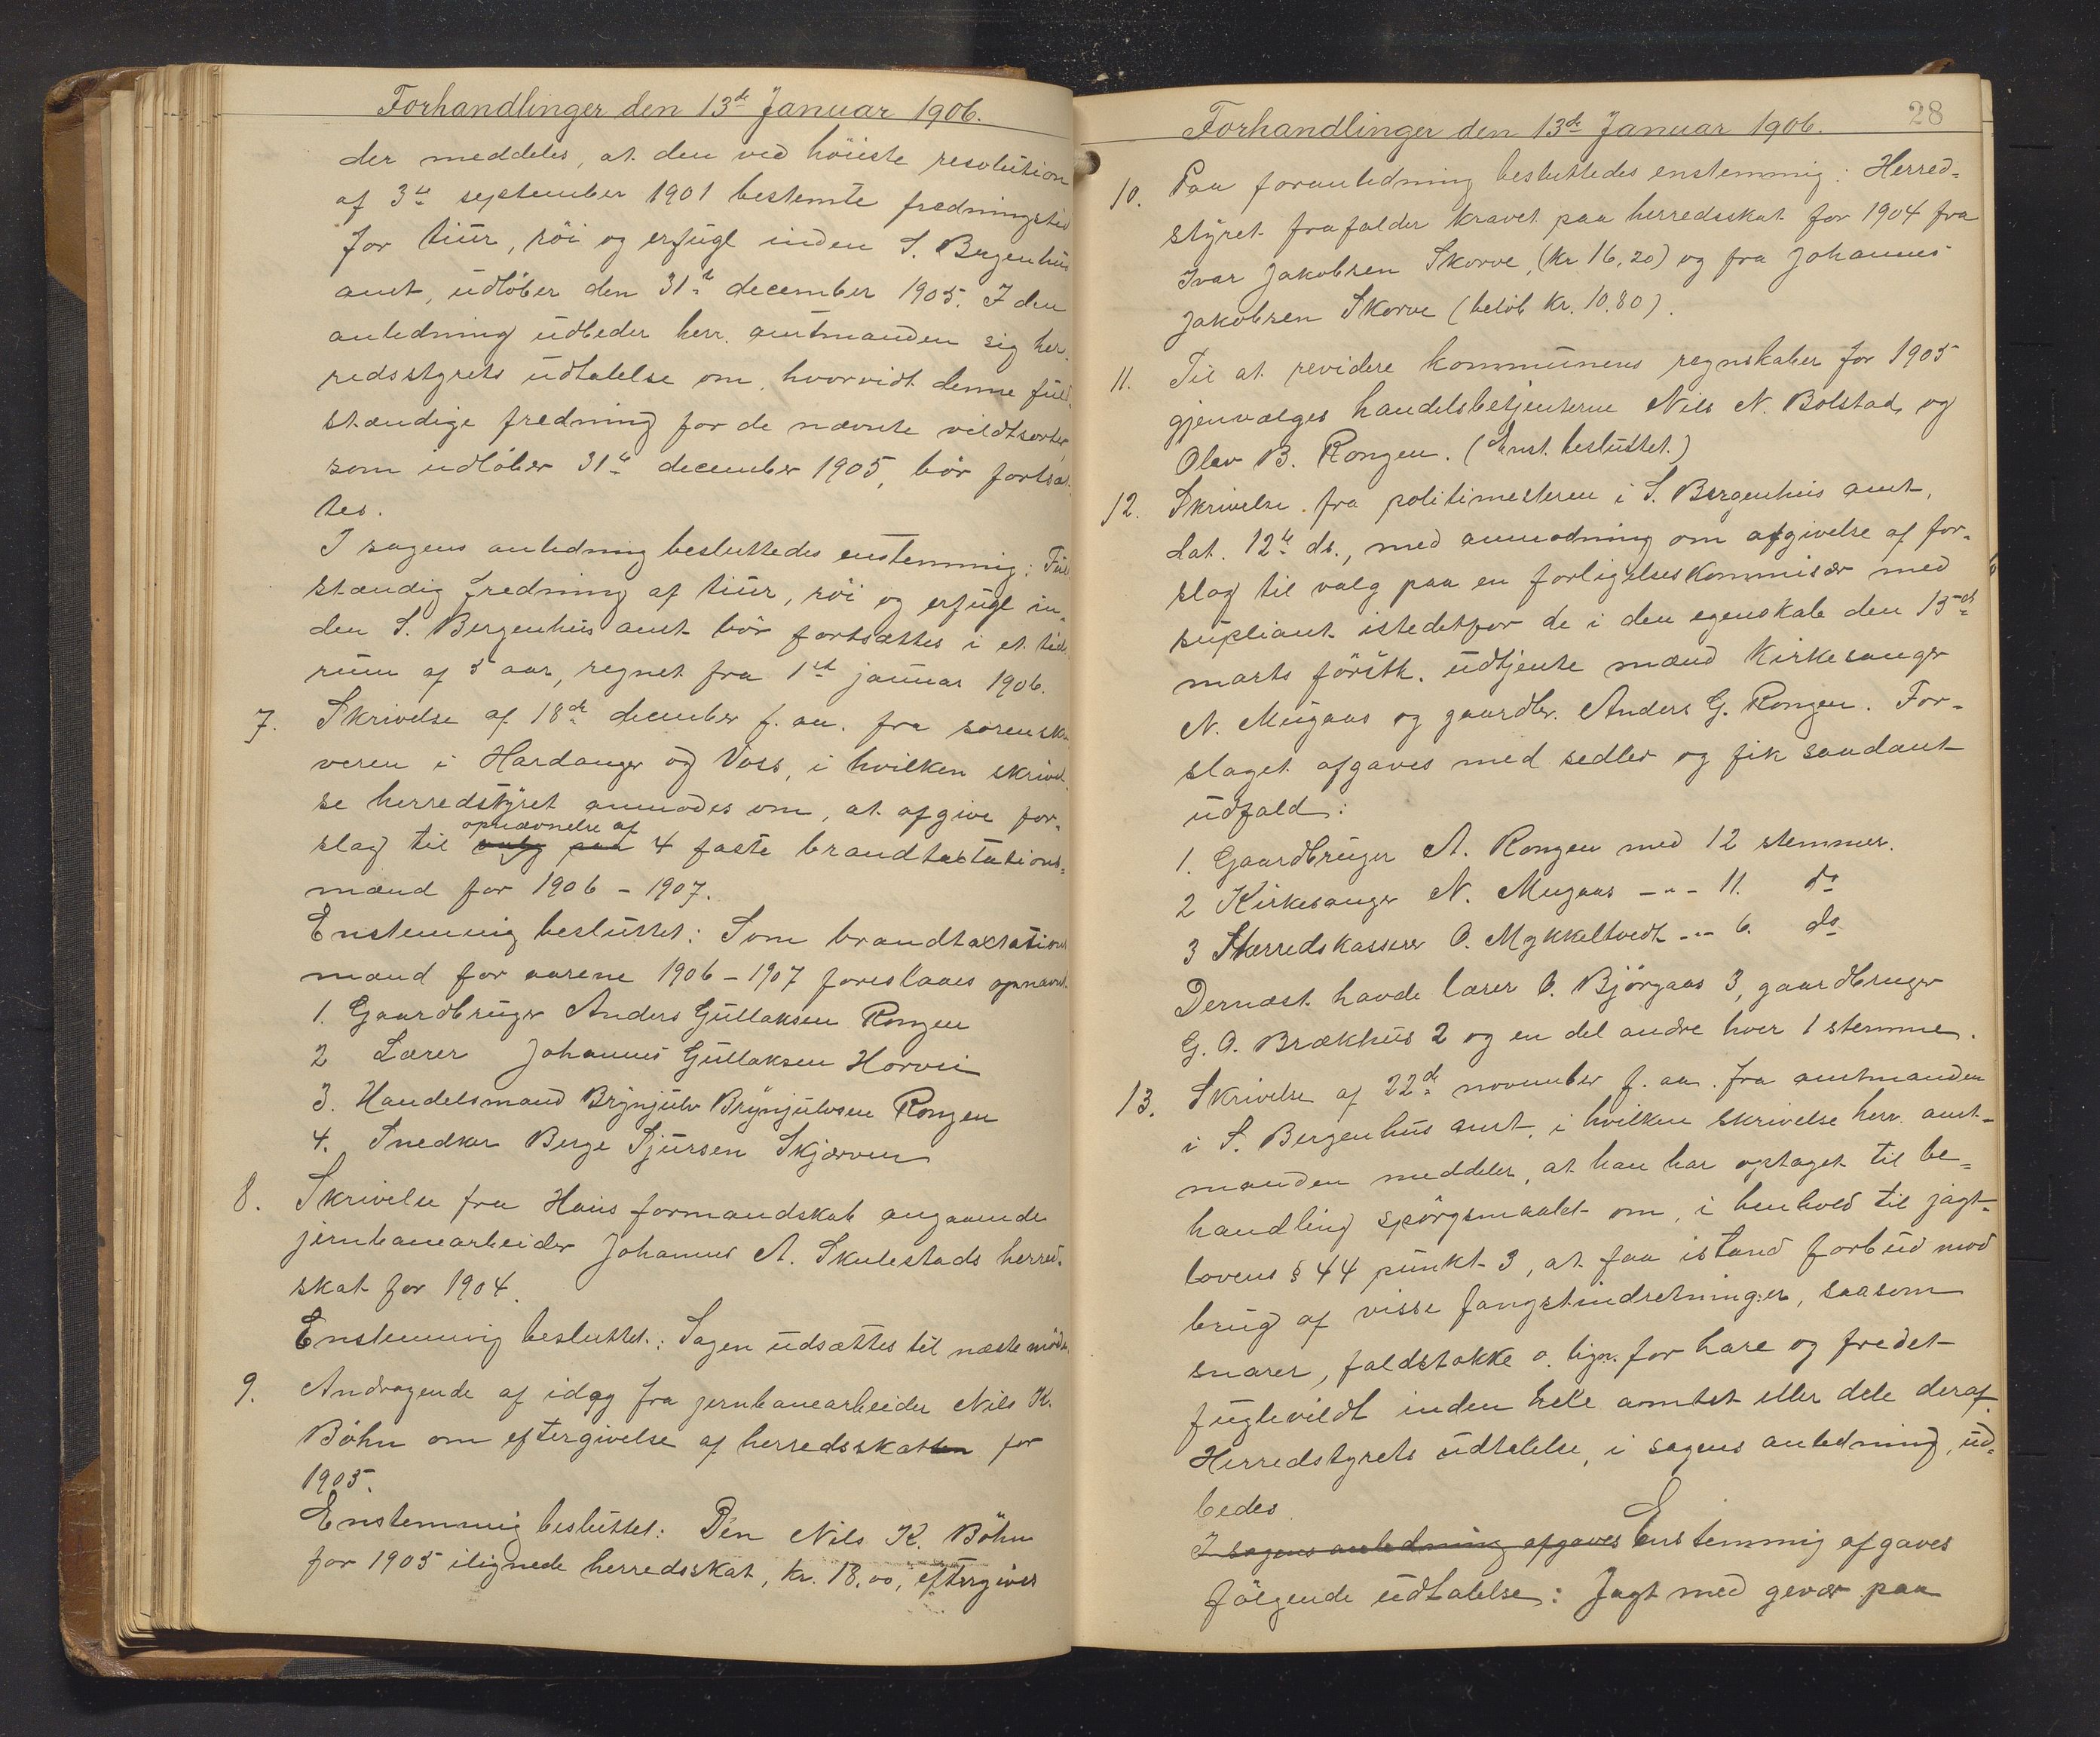 Forhandlinger den 13de Januar 1906.
der meddeles, at den ved höieste resolution
af 3die september 1901 bestemte fredningstid
for tiur, röi og erfugl inden S. Bergenhus
amt, udlöber den 31te december 1905. I den
anledning udbeder herr. amtmanden sig her-
redsstyrets udtalelse om, hvorvidt denne fuld-
stændige fredning for de nævnte vildtsorter,
som udlöber 31te december 1905, bör fortsæt-
tes.
I sagens anledning besluttedes enstemmig: Ful-
stændig fredning af tiur, röi og erfugl in-
den S. Bergenhus amt bör fortsættes i et tids-
rum af 5 aar, regnet fra 1ste januar 1906.
7. Skrivelse af 18de december f. aa. fra sorenskri-
veren i Hardanger og Voss, i hvilken skrivel-
se herredstyret anmodes om, at afgive for-
opnævnelse af
slag til valg paa 4 faste brandtaxtations-
mænd for 1906 - 1907.
Enstemmig besluttet: Som brandtaxtations
mænd for aarene 1906 - 1907 foreslaaes opnævnt
1. Gaardbruger Anders Gullaksen Rongen
2 Lærer Johannes Gullaksen Horvei
3. Handelsmand Brynjulv Brynjulvsen Rongen
4. Snedker Berge Sjursen Skjerven
8. Skrivelse fra Haus formandskab angaaende
jernbanearbeider Johannes A. Skulestads herred-
skat for 1904.
Enstemmig besluttet: Sagen udsættes til næste möde.
9. Andragende af idag fra jernbanearbeider Nils K.
Böhn om eftergivelse af herredsskatten for
1905.
Enstemmig besluttet: Den Nils K. Böhn
for 1905 ilignede herredsskat, kr. 18,00, eftergives
Forhandlinger den 13de Januar 1906. 28
10. Paa foranledning besluttedes enstemmig: Herred-
styret frafalder kravet paa herredsskat for 1904 fra
Ivar Jakobsen Skorve, (kr 16,20) og fra Johannes
Jakobsen Skorve (beløb kr. 10.80).
11. Til at revidere kommunens regnskaber for 1905
gjenvælges handelsbetjenterne Nils N. Bolstad og
Olav B. Rongen. (Enst. besluttet.)
12. Skrivelse fra politimesteren i S. Bergenhus amt,
dat. 12te ds., med anmodning om afgivelse af for-
slag til valg paa en forligelseskommisær med
supliant istedetfor de i den egenskab den 15de
marts förstk. udtjente mænd kirkesanger
N. Mugaas og gaardbr. Anders G. Rongen. For-
slaget afgaves med sedler og fik saadant
udfald:
1. Gaardbruger A. Rongen med 12 stemmer.
2 Kirkesanger N. Mugaas -"- 11. do
3 Herredskasserer O. Mykkeltvedt -"- 6. do
Dernæst havde lærer O. Björgaas 3, gaardbruger
G. O. Brækhus 2 og en del andre hver 1 stemme.
13. Skrivelse af 22de november f. aa. fra amtmanden
i S. Bergenhus amt, i hvilken skrivelse herr. amt-
manden meddeler, at han har optaget til be-
handling spörgsmaalet om, i henhold til jagt-
lovens § 44 punkt 3, at faa istand forbud mod
brug af visse fangstindretninger, saasom
snarer, faldstokke o. lign. for hare og fredet
fuglevildt inden hele amtet eller dele deraf.
Herredstyrets udtalelse, i sagens anledning, ud-
bedes.
I sagens anledning afgaves Enstemmig afgaves
fölgende udtalelse: Jagt med gevær paa